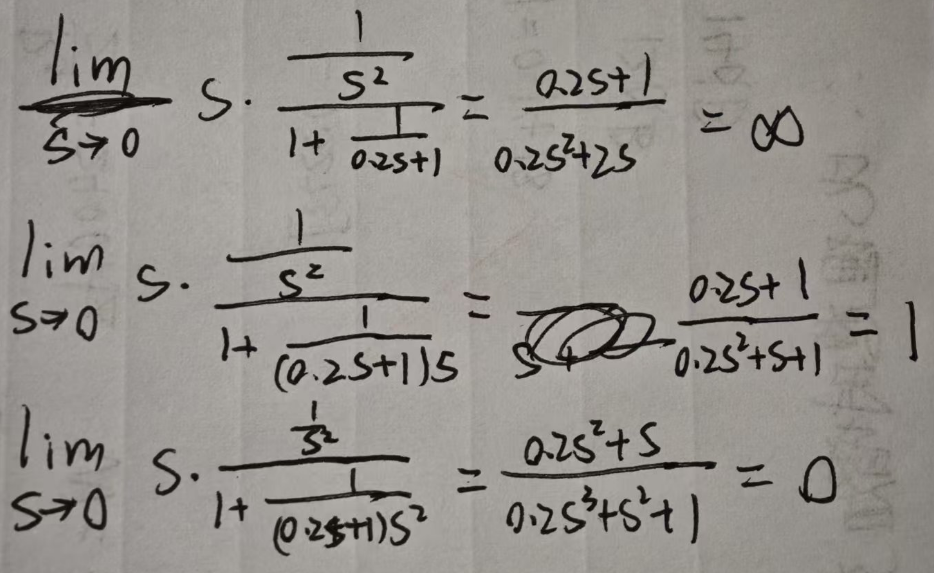 lim_{s→0} s · (1/s²)/(1 + 1/(0.2s+1)) = (0.2s+1)/(0.2s²+2s) = ∞
lim_{s→0} s · (1/s²)/(1 + 1/((0.2s+1)s)) = (0.2s+1)/(0.2s²+s+1) = 1
lim_{s→0} s · (1/s²)/(1 + 1/((0.2s+1)s²)) = (0.2s²+s)/(0.2s³+s²+1) = 0